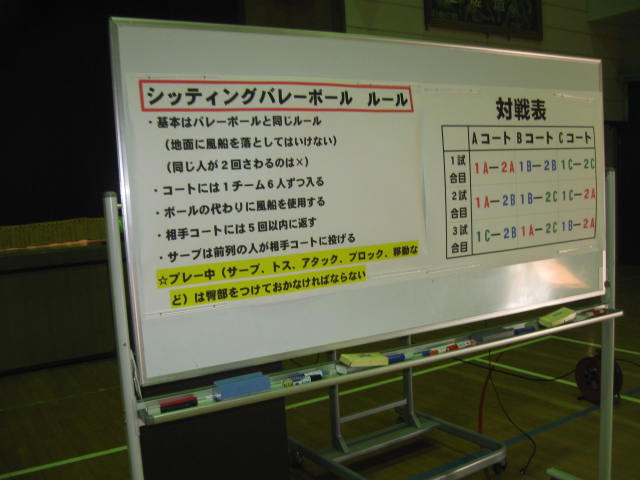 シッティングバレーボール　ルール
・基本はバレーボールと同じルール
（地面に風船を落としてはいけない）
（同じ人が２回さわるのは×）
・コートには１チーム６人ずつ入る
・ボールの代わりに風船を使用する
・相手コートには５回以内に返す
・サーブは前列の人が相手コートに投げる
☆プレー中（サーブ、トス、アタック、ブロック、移動な
ど）は臀部をつけておかなければならない
対戦表
Aコート Bコート Cコート
1試合目 1A－2A 1B－2B 1C－2C
2試合目 1A－2B 1B－2C 1C－2A
3試合目 1C－2B 1A－2C 1B－2A